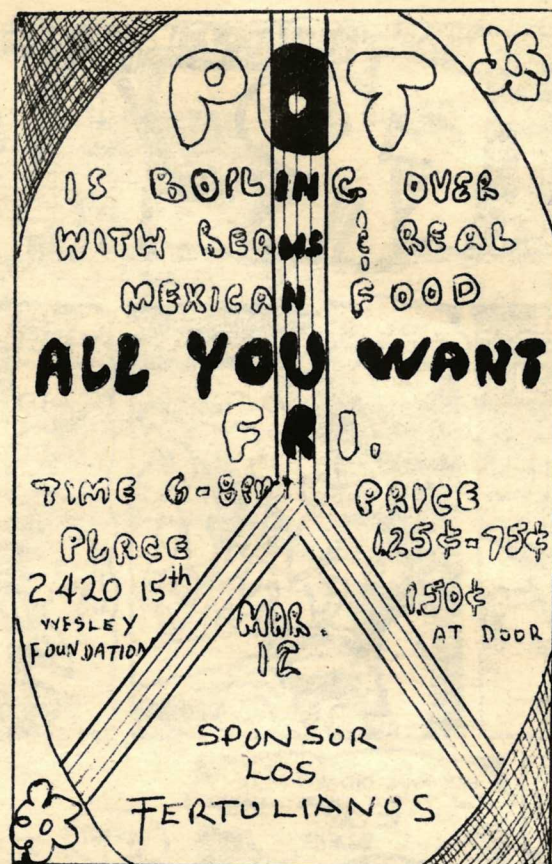 POT
IS BOILING OVER
WITH BEANS & REAL
MEXICAN FOOD
ALL YOU WANT
FRI.
TIME 6-8PM
PLACE
2420 15th
WESLEY
FOUNDATION
PRICE
1.25¢-75¢
1.50¢
AT DOOR
MAR.
12
SPONSOR
LOS
FERTULIANOS